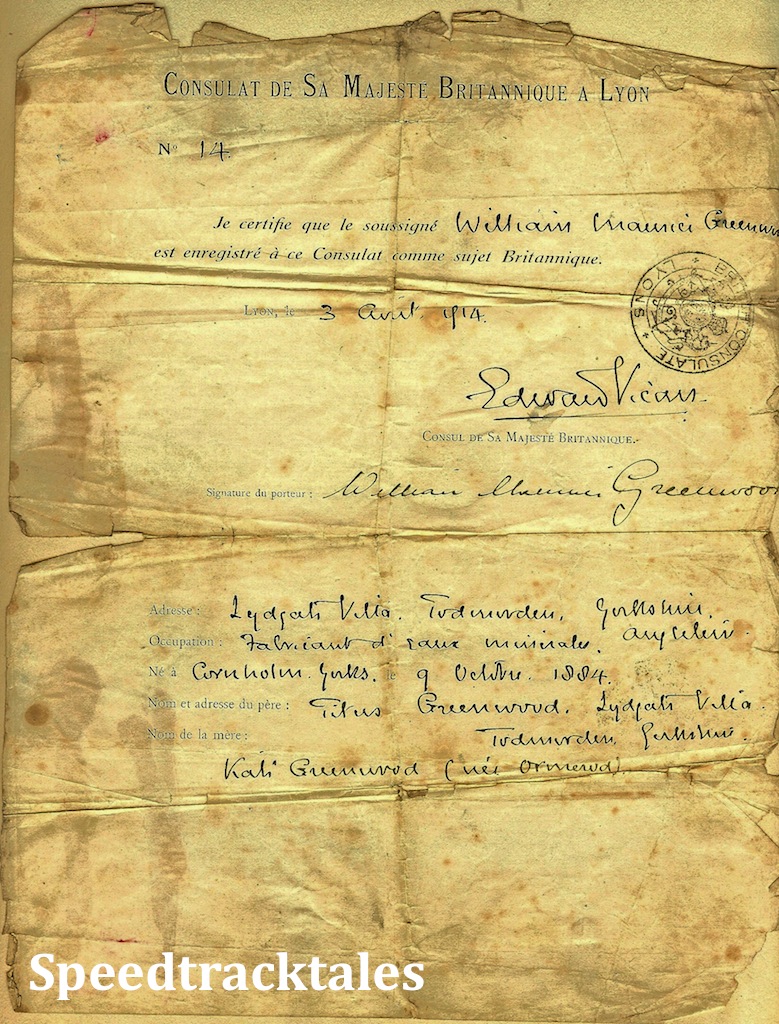 CONSULAT DE SA MAJESTÉ BRITANNIQUE A LYON
No 14.
Je certifie que le soussigné William Maurice Greenw
est enregistré à ce Consulat comme sujet Britannique.
BRITISH CONSULATE LYONS
LYON, le 3 Avril 1914.
Edward Vicars
CONSUL DE SA MAJESTÉ BRITANNIQUE.
Signature du porteur : William Maurice Greenwood
Adresse : Lydgate Villa. Todmorden, Yorkshire,
Angleterre.
Occupation : Fabricant d'eaux minérales.
Né à Cornholm. Yorks. le 9 Octobre. 1884.
Nom et adresse du père : Titus Greenwood. Lydgate Villa.
Todmorden, Yorkshire.
Nom de la mère :
Kate Greenwood (née Ormerod).
Speedtracktales